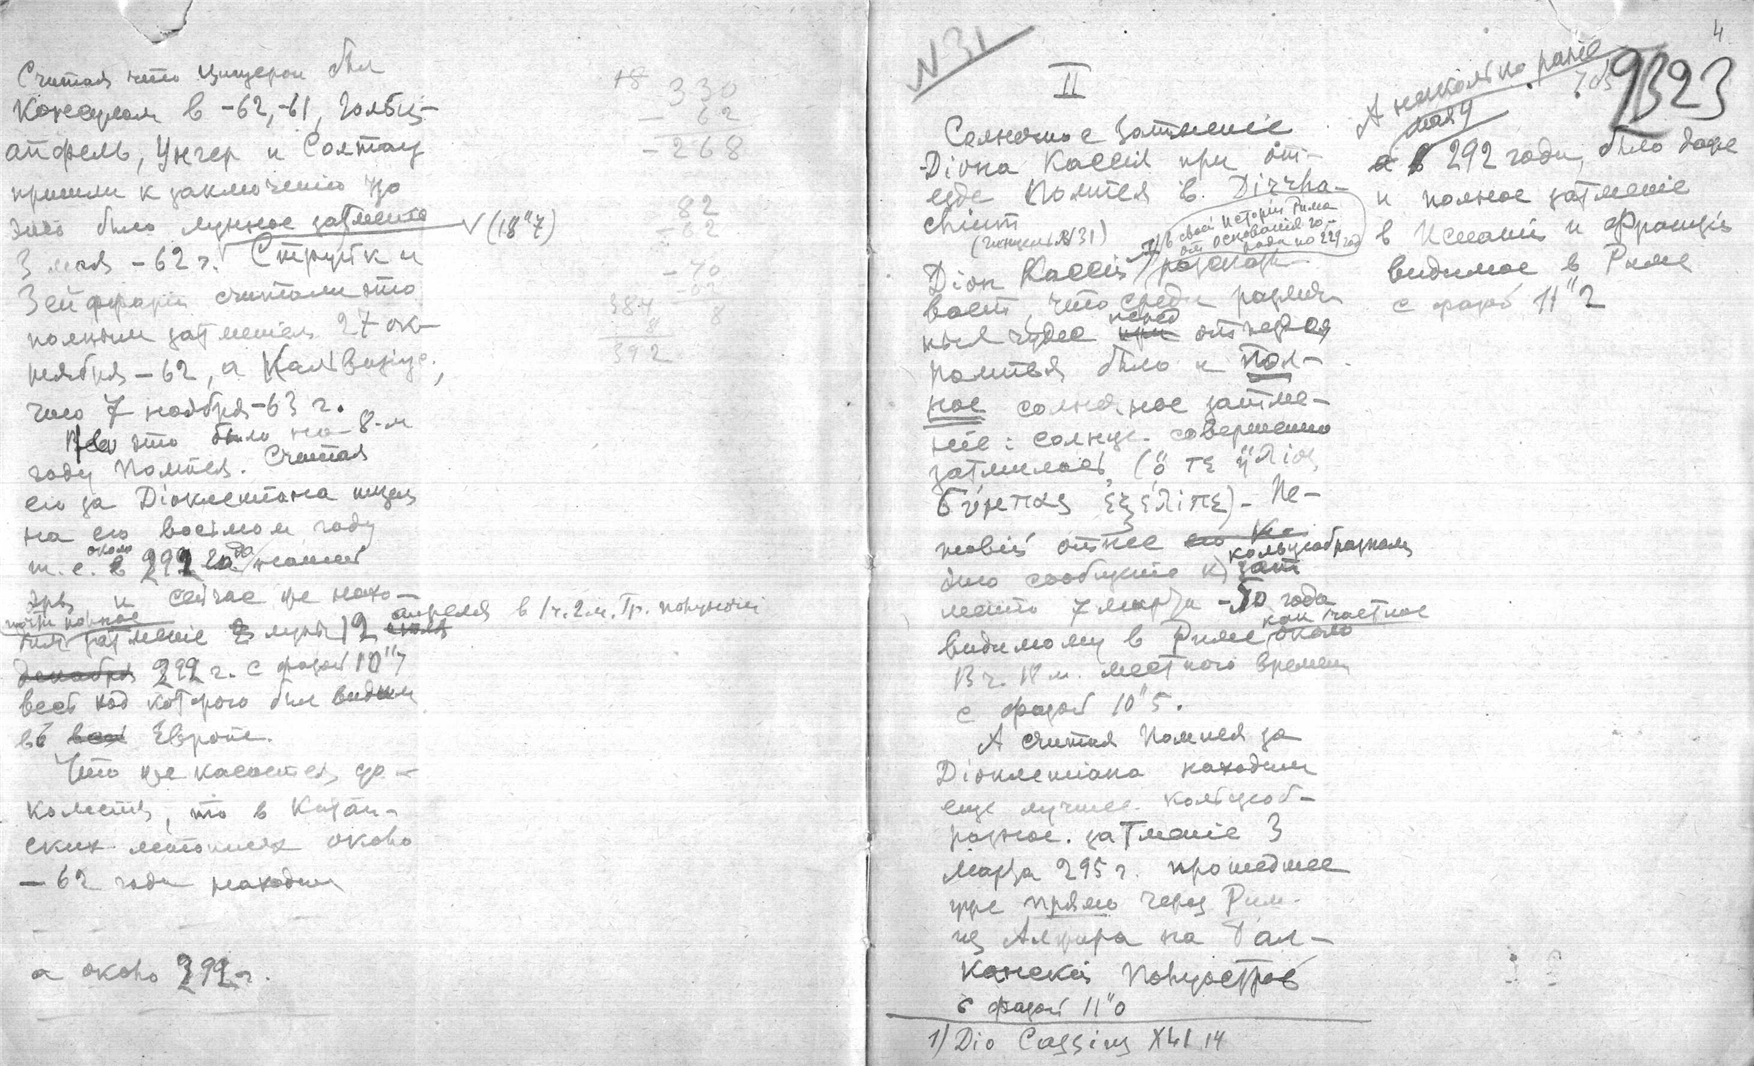 Считая что Цицерон был
Консулом в -62, -61, Гольбц-
апфель, Унгер и Солтау
пришли к заключению что
это было лунное затменіе √(18"7)
3 мая -62 г. Струйк и
Зейффарт считали это
полным затменіем 27 ок-
тября -62, а Калвизіус,
что 7 ноября -63 г.
это было на 8-м
году Помпея. Считая
его за Діоклетіана ищем
на его восьмом году
т.е. около 292 года нашей
эры и сейчас же нахо-
почти полное
дим затменіе луны 12 апреля в 1 ч. 2 м. Гр. полуночи
декабря 292 г. с фазой 10"7
весь ход которого был видим
в Европе.
Что же касается до
кометы, то в Китай-
ских летописях около
-62 года находим
а около 292 г.
18
330
- 62
-268
82
-62
-70
-62
8
384
8
392
N31
4
II
2323
Солнечное Затменіе
Діона Кассія при отъ-
езде Помпея в Dirrha-
chium
(Гинцель N31)
в своей Исторіи Рима
от основанія го-
рода по 229 год
Діон Кассій 1) рассказы-
вает, что среди различ-
ных чудес перед при отъездом
Помпея было и пол-
ное солнечное затме-
ніе: солнце совершенно
затмилось (ὁ τε ἥλιος
σύμπας ἐξέλιπε). Пе-
тавій отнес
кольцеобразному
это сообщение к) зат
менію 7 марта -50 года
как частное
видимому в Риме около
13 ч. 18 м. местного времени
с фазой 10"5.
А считая Помпея за
Діоклетіана находим
еще лучшее кольцеоб-
разное затменіе 3
Марта 295 г. прошедшее
уже прямо через Рим
из Алжира на Бал-
канскій Полуостров
с фазой 11"0
1) Dio Cassius XLI 14
А несколько ранее
4 мая
в 292 году, было даже
и полное затменіе
в Испаніи и Франціи
видимое в Риме
с фазой 11"2